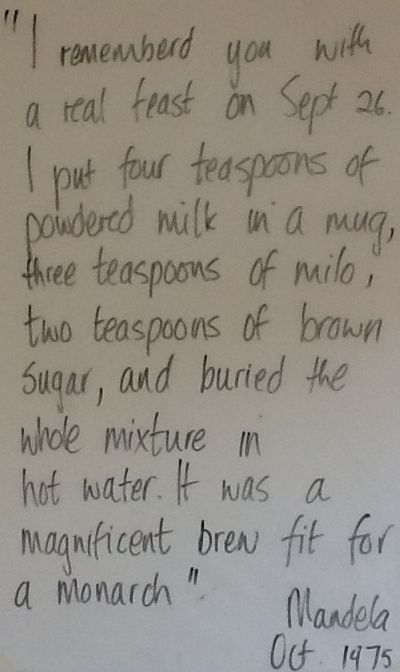 "I rememberd you with
a real feast on Sept 26.
I put four teaspoons of
powdered milk in a mug,
three teaspoons of milo,
two teaspoons of brown
sugar, and buried the
whole mixture in
hot water. It was a
magnificent brew fit for
a monarch".
Mandela
Oct. 1975